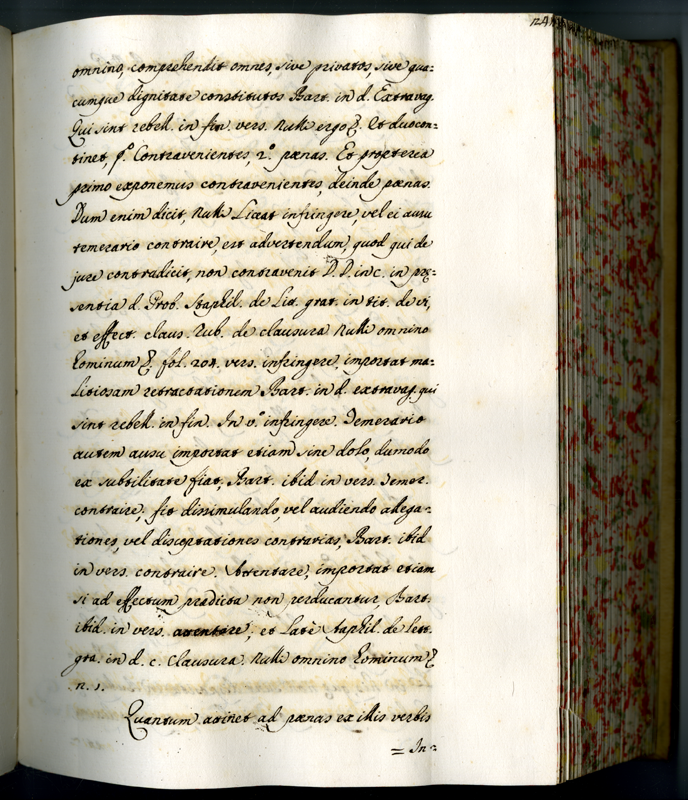 124
omnino, comprehendit omnes, sive privatos, sive qua:
cumque dignitate constitutos Bart. in d. Extravag.
Qui sint rebell. in fin vers. Nulli ergo &. Et duo con:
tinet, pº. Contravenientes, 2º. pænas. Et propterea
primo exponemus contravenientes, deinde pænas.
Dum enim dicit, Nulli Liceat infringere, vel ei ausu
temerario contraire, est advertendum, quod qui de
jure contradicit, non contravenit D.D. in c. in præ:
sentia d. Prob. Staphil. de Lit. grat. in tit. de vi,
et effect. claus. Rub. de clausura Nulli omnino
hominum &. fol. 204. vers. infringere, importat ma:
litiosam retractationem Bart. in d. extravag. qui
sint rebell. in fin. In vº infringere. Temerario
autem ausu importat etiam sine dolo, dumodo
ex subtilitate fiat, Bart. ibid in vers. Temer.
contraire, fit dissimulando, vel audiendo allega:
tiones, vel disceptationes contrarias, Bart. ibid
in vers. contraire. Attentare, importat etiam
si ad effectum prædicta non perducantur, Bart.
ibid. in vers. attentare, et Latè Staphil. de lett.
gra. in d. c. Clausura Nulli omnino hominum &
n. 1.
Quantum attinet ad pænas ex illis verbis
= In: